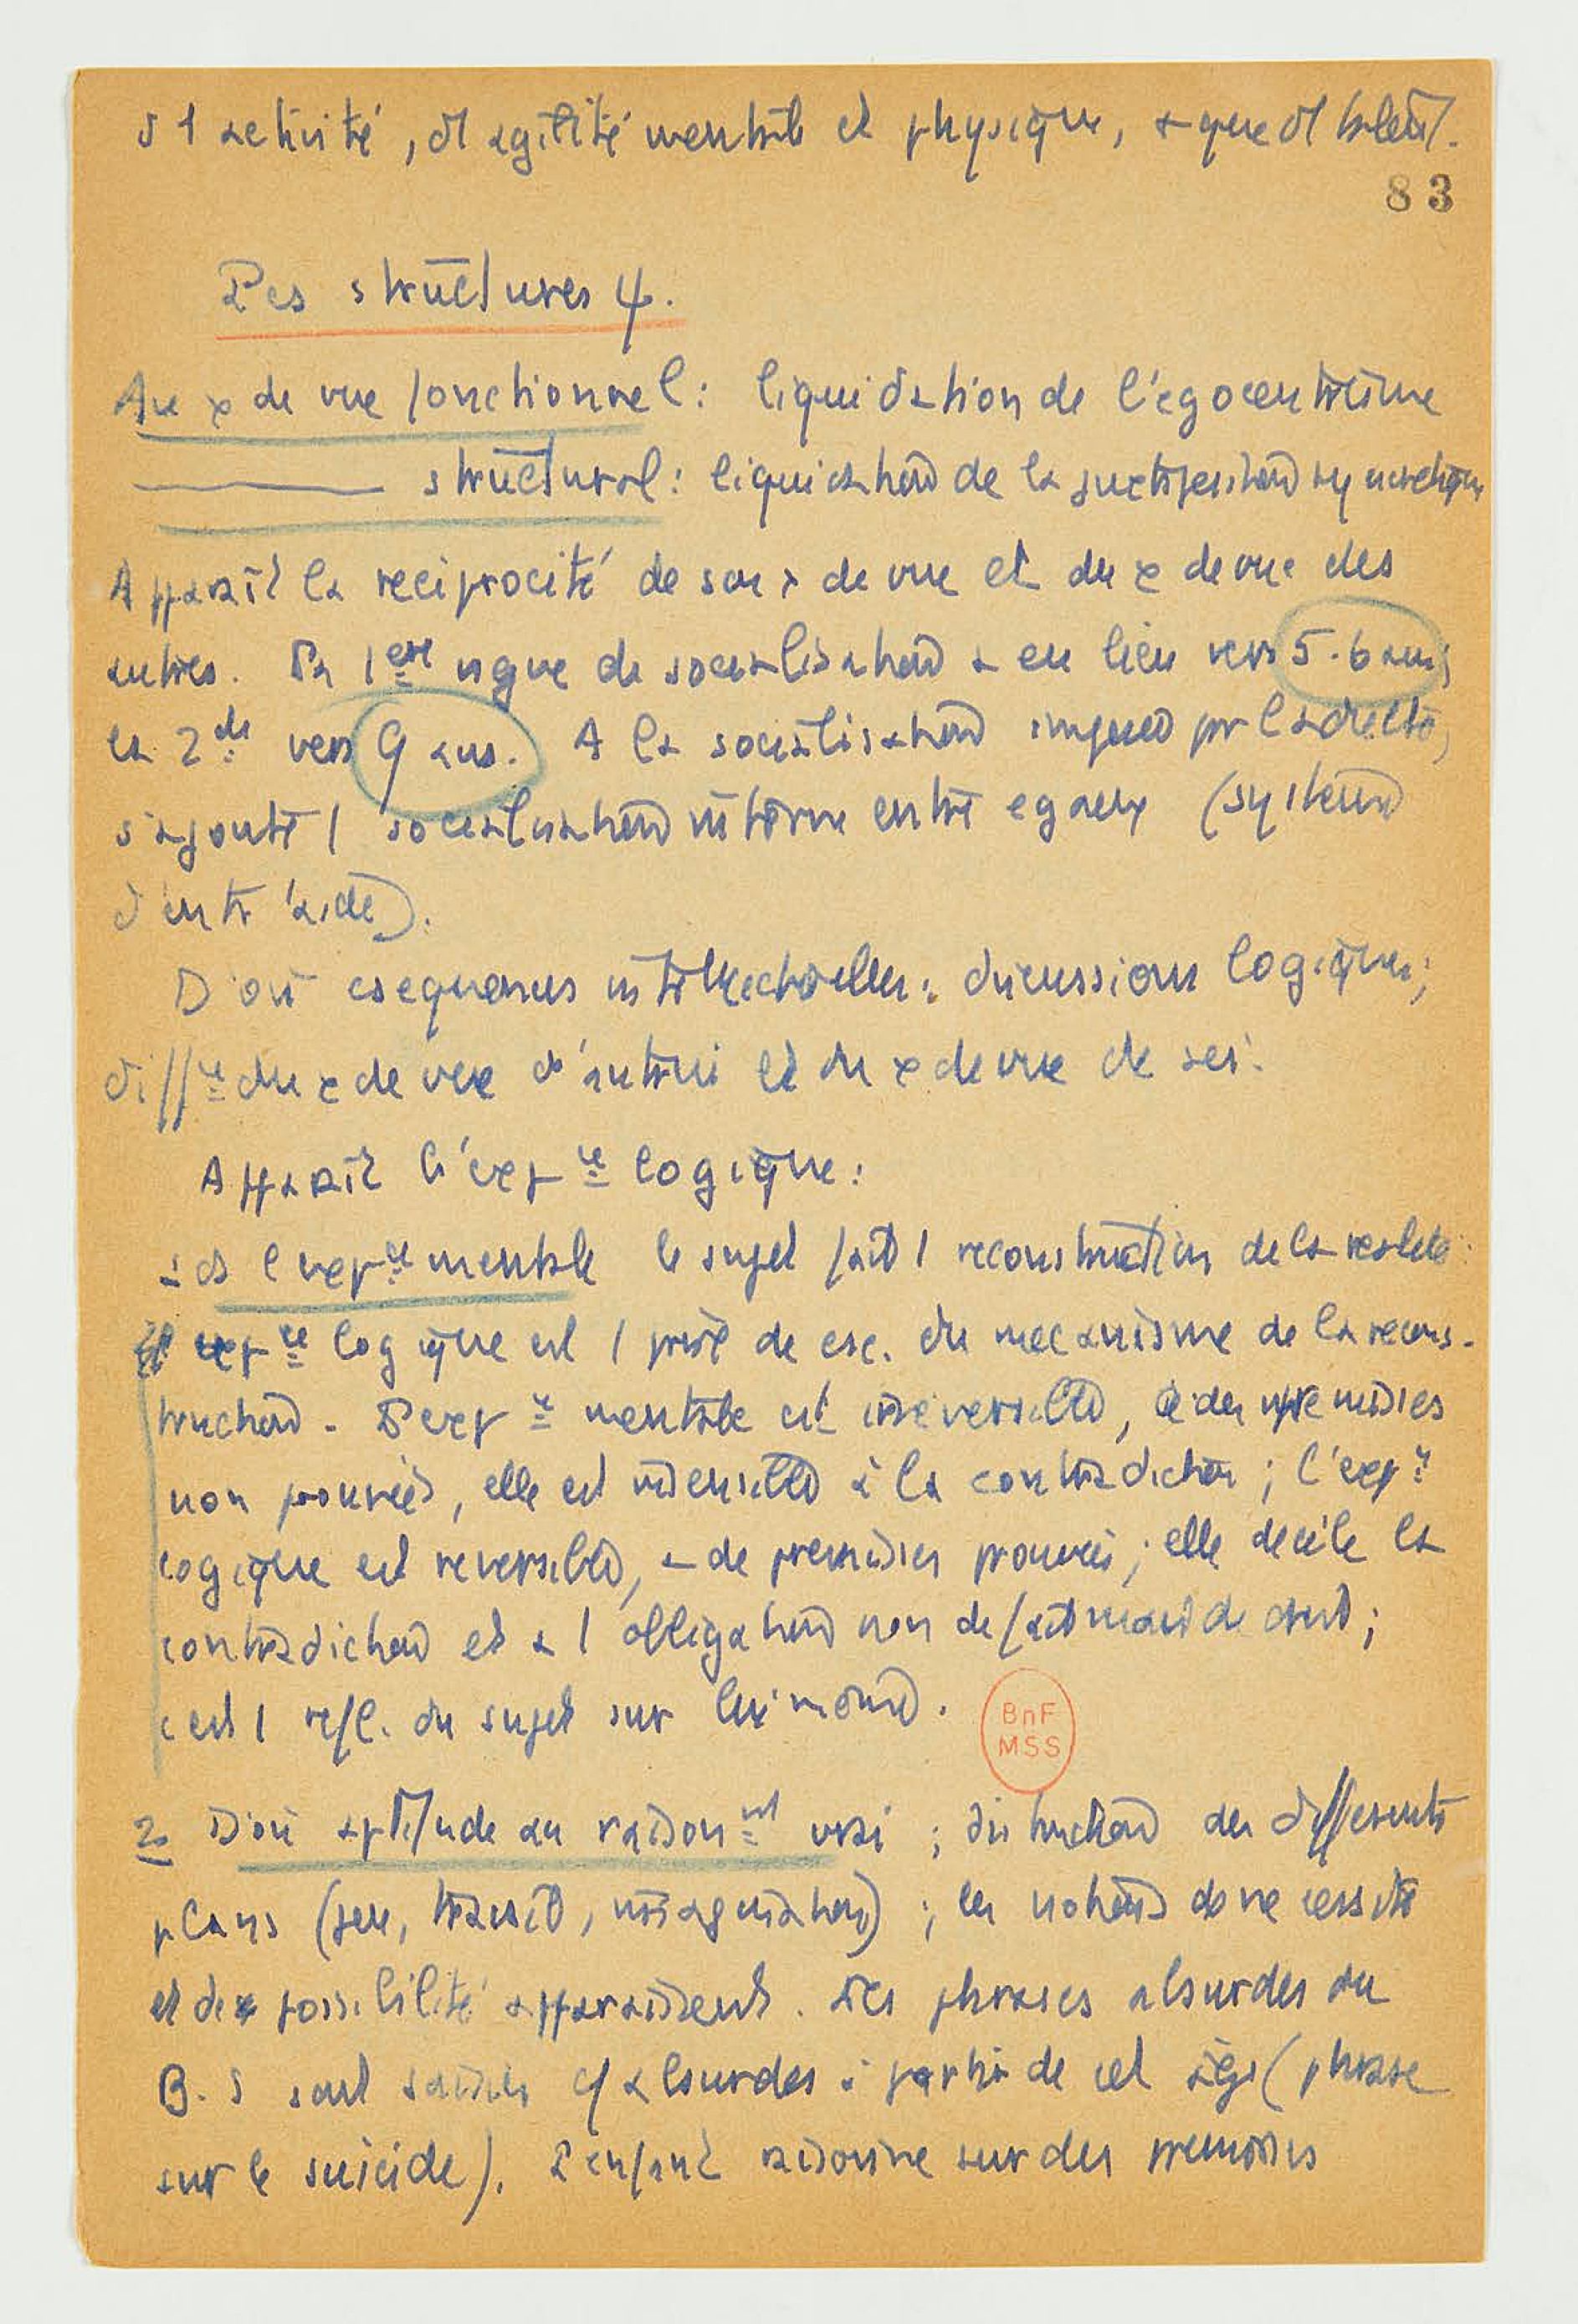 d 1 activité, d'1 agilité mentale et physique, + que d'1 talent.
83
Les structures ψ.
Au x de vue fonctionnel : liquidation de l'égocentrisme
structural : liquidation de la juxtaposition syncrétique
Apparaît la réciprocité de son x de vue et du x de vue des
autres. La 1ere de socialisation a eu lieu vers 5-6 ans ;
la 2de vers 9 ans. A la socialisation imposée par l'adulte,
s'ajoute 1 socialisation interne entre egaux (système
d'entr'aide).
D'où csequences intellectuelles : discussions logiques ;
diffce du x de vue d'autrui et du x de vue de soi.
Apparaît l'expce logique :
ds l'expce mentale le sujet fait 1 reconstruction de la realité :
expce logique est 1 prise de csc. du mécanisme de la recons-
truction. L'expce mentale est irréversible, a des premisses
non prouvées, elle est insensible à la contradiction ; l'expce
logique est reversible, a de premisses prouvées ; elle décèle la
contradiction et a 1 obligation non de fait mais de droit ;
c'est 1 refl. du sujet sur lui même.
2 D'où aptitude au raisonnt vrai ; distinction des différents
plans (jeu, travail, imagination) ; les notions de necessité
et de possibilité apparaissent. Les phrases absurdes du
B.S sont saisies absurdes à partir de cet âge (phrase
sur le suicide). L'enfant raisonne sur des premisses